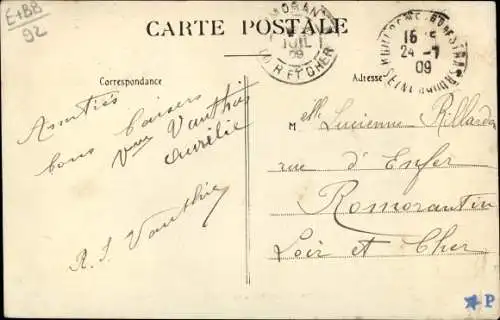 E+BB
92
CARTE POSTALE
Correspondance
Adresse
15
24 - 7
09
LOIR ET CHER
09
Amitiés
bons baisers
Vauthier
Aurélie
R. S. Vauthier
M elle Lucienne Rillardon
rue d'Enfer
Romorantin
Loir et Cher
P